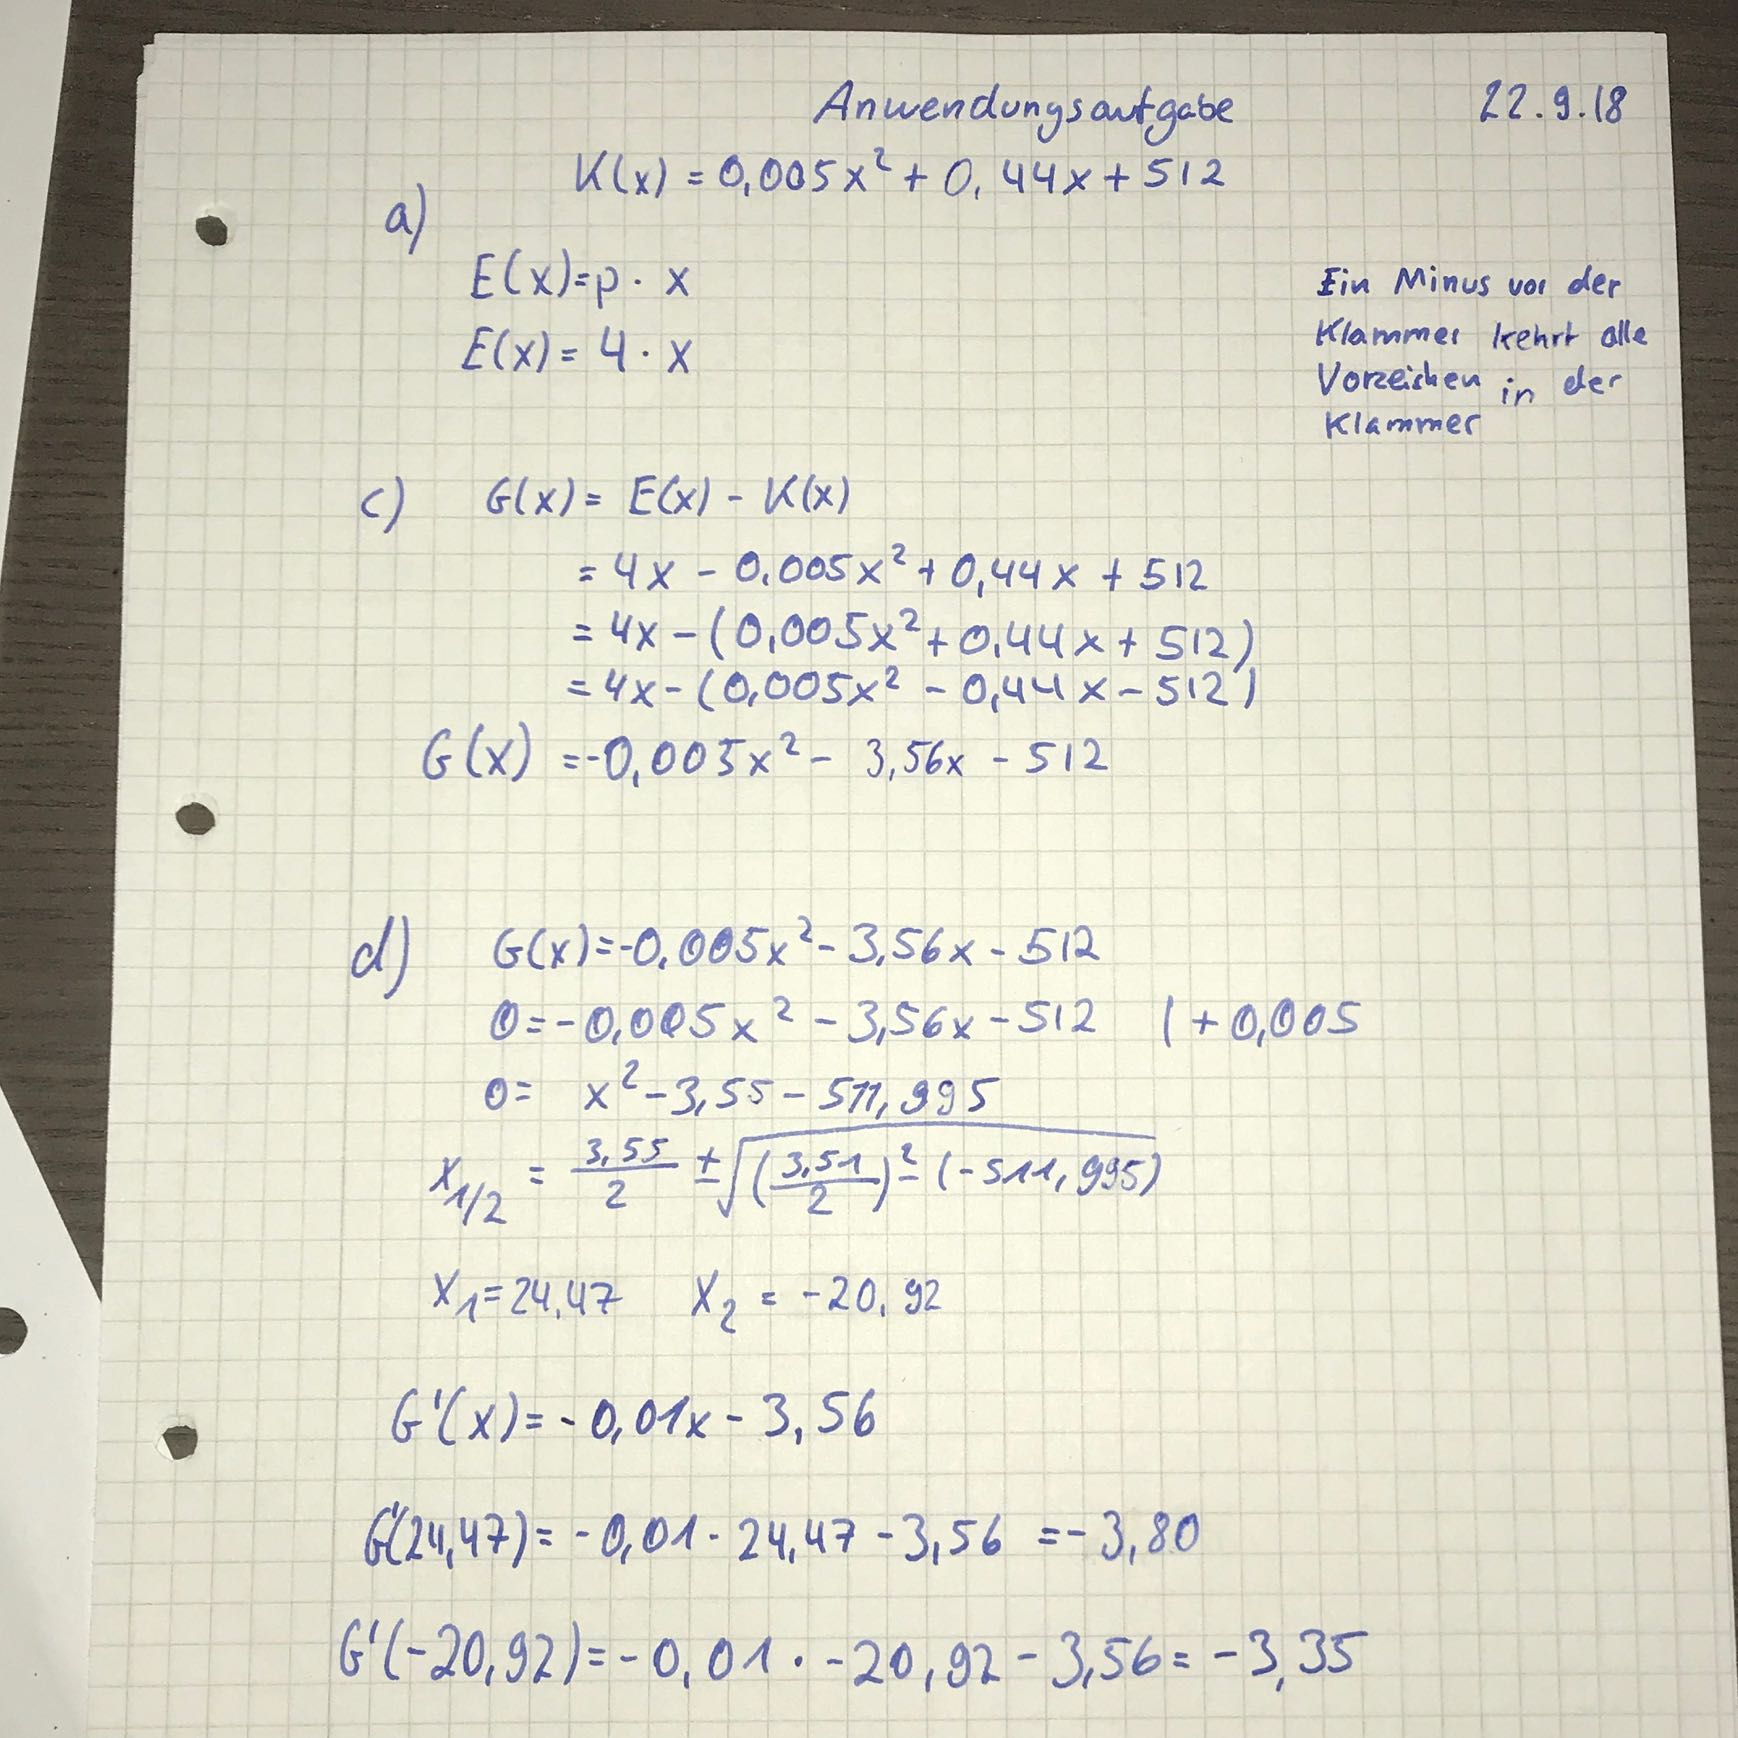 Anwendungsaufgabe 22.9.18
K(x) = 0,005x² + 0,44x + 512
a)
E(x)=p · x
E(x)= 4 · x
Ein Minus vor der
Klammer kehrt alle
Vorzeichen in der
Klammer
c) G(x) = E(x) - K(x)
= 4x - 0,005x² + 0,44x + 512
= 4x - (0,005x² + 0,44x + 512)
= 4x - (0,005x² - 0,44x - 512)
G(x) = -0,005x² - 3,56x - 512
d) G(x)=-0,005x² - 3,56x - 512
0 = -0,005x² - 3,56x - 512 | + 0,005
0 = x² - 3,55 - 511,995
x1/2 = 3,55/2 ± √((3,51/2)² - (-511,995))
x1 = 24,47 x2 = -20,92
G'(x) = -0,01x - 3,56
G'(24,47) = -0,01 · 24,47 - 3,56 = -3,80
G'(-20,92) = -0,01 · -20,92 - 3,56 = -3,35